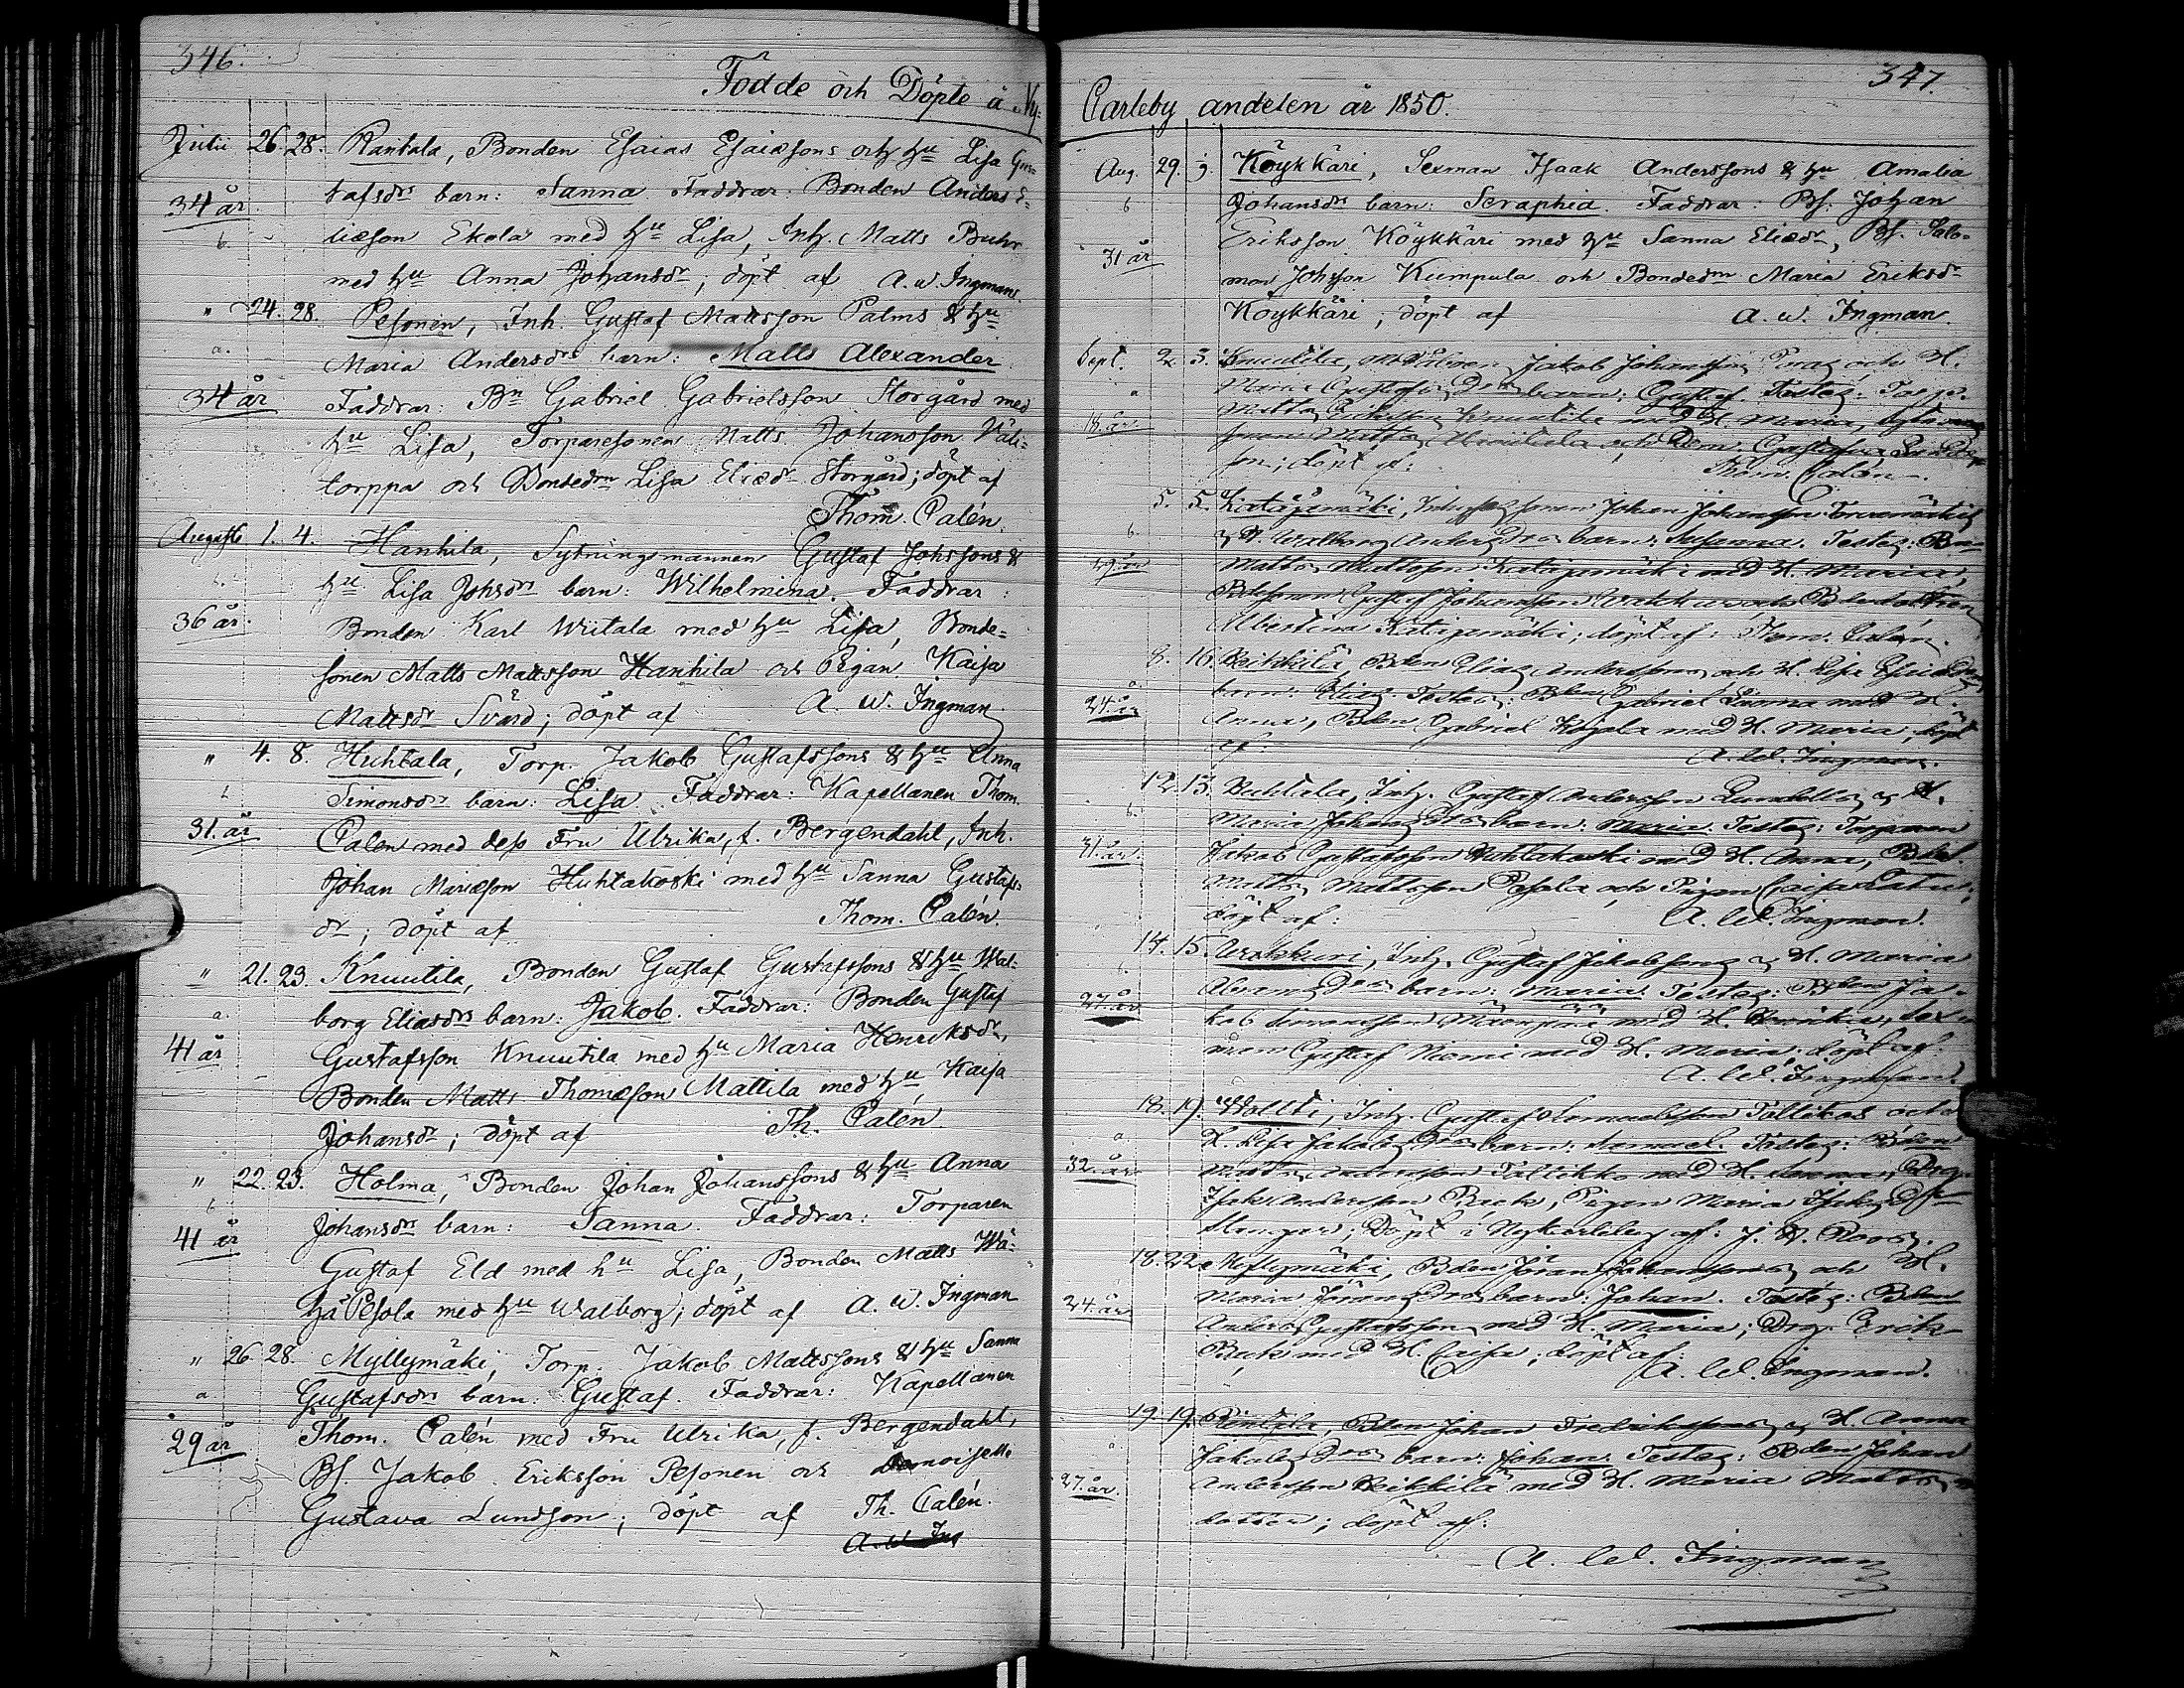 346.
Födde och Döpte å Ny:
Julii 26. 28. Rantala, Bonden Esaias Esaiæsons och hu Lisa Gus-
34 år tafsdrs barn: Sanna. Faddrar: Bonden Anders E-
b. liæson Ekola med hu Lisa, Inh. Matts Buhr
med hu Anna Johansdr; döpt af A. W. Ingman.
" 24. 28. Pesonen, Inh. Gustaf Mattsson Palms & hu
a. Maria Andersdrs barn: Matts Alexander
34 år Faddrar: Bn Gabriel Gabrielsson Storgård med
hu Lisa, Torparesonen Matts Johansson Väli-
torppa och Bondedrn Lisa Eliædr Storgård; döpt af
Thom. Calén.
Augusti 1. 4. Hanhila, Sytningsmannen Gustaf Johssons &
b. hu Lisa Johsdrs barn: Wilhelmina. Faddrar:
36 år Bonden Karl Wiitala med hu Lisa, Bonde-
sonen Matts Mattsson Hanhila och Pigan Kaisa
Mattsdr Svärd; döpt af A. W. Ingman
" 4. 8. Huhtala, Torp. Jakob Gustafssons & hu Anna
b Simonsdrs barn: Lisa. Faddrar: Kapellanen Thom.
31. år Calen med dess Fru Ulrika, f. Bergendahl, Inh.
Johan Mariæson Huhtakoski med hu Sanna Gustafs-
dr; döpt af Thom. Calén.
" 21. 23. Knuutila, Bonden Gustaf Gustafssons & hu Wal-
a. borg Eliasdrs barn: Jakob. Faddrar: Bonden Gustaf
41 år Gustafsson Knuutila med hu Maria Henriksdr,
Bonden Matts Thomæson Mattila med hu Kaisa
Johansdr; döpt af Th. Calén
" 22. 23. Holma, Bonden Johan Johanssons & hu Anna
b Johansdrs barn: Sanna. Faddrar: Torparen
41 år Gustaf Eld med hu Lisa, Bonden Matts Wä-
hä Pesola med hu Walborg; döpt af A. W. Ingman
" 26. 28. Myllymäki, Torp. Jakob Mattssons & hu Sanna
a. Gustafsdrs barn: Gustaf. Faddrar: Kapellanen
29 år Thom. Calén med Fru Ulrika, f. Bergendahl,
Bs. Jakob Eriksson Pesonen och Demoiselle
Gustava Lundson; döpt af Th. Calén.
A. W. Ing
347.
Carleby andelen år 1850.
Aug. 29. Köykkäri, Sexman Isaak Anderssons & hu Amalia
b Johansdrs barn: Seraphia. Faddrar: Bs. Johan
31 år Eriksson Köykkäri med hu Sanna Eliædr, Bs. Salo-
mon Johsson Kumpula och Bondedrn Maria Eriksdr
Köykkäri; döpt af A. W. Ingman.
Sept. 2. 3. Knuutila, Jakob Johansson och H.
a Maria Gustafs Drs barn: Gustaf. Testes: Torp.
18 år Matts Knuutila med H. Maria,
Matts och Dem. Gustafva
son; döpt af: Thom. Calén.
5. 5. Katajamäki, Johan Johansson
b. & H. Walborg Anders Drs barn: Susanna. Testes: Bn
29 år Matts Mattsson Katajamäki med H. Maria,
Bdesonen Gustaf Johansson och Bdedottren
Albertina Katajamäki; döpt af: Thom. Calén.
8. 16. Heikkilä, Bden Elias Anderssons och H. Lisa
a barn: Elias. Testes: Bden Gabriel Luoma med H.
24. år Anna, Bden Gabriel Kojola med H. Maria; döpt
af: A. W. Ingman.
12. 13. Huhtala, Inh. Gustaf Andersson & H.
b. Maria Johans Drs barn: Maria. Testes: Torparen
31. år. Jakob Gustafsson Huhtakoski med H. Anna, Bds.
Matts Mattsson Pesola och Pigan Caisa
döpt af: A. W. Ingman.
14. 15. Inh. Gustaf Jakobsons & H. Maria
b. Abrams Drs barn: Maria. Testes: Bden Ja-
27. år kob Simonsson med H. Sex-
man Gustaf Niemi med H. Maria; döpt af:
A. W. Ingman.
18. 19. Wollti, Inh. Gustaf Samuelsson Tollikos och
a H. Lisa Jakobs Drs barn: Samuel. Testes: Bden
32. år Andersson Tallikko med H. Sanna, Drg.
Isak Andersson Back, Pigan Maria Isaks Dr
döpt i Nykarleby af: J. H. Roos.
18. 22. Myllymäki, Bden Jöran Johanssons och H.
Maria Jörans Drs barn: Johan. Testes: Bden
24 år Anders Gustafsson med H. Maria; Drg. Erik
Back med H. Caisa; döpt af:
A. W. Ingman.
19. 19. Rintala, Bden Johan Fredrikssons & H. Anna
a Jakobs Drs barn: Johan. Testes: Bden Johan
27. år. Andersson Heikkilä med H. Maria Matts
dotter; döpt af:
A. W. Ingman